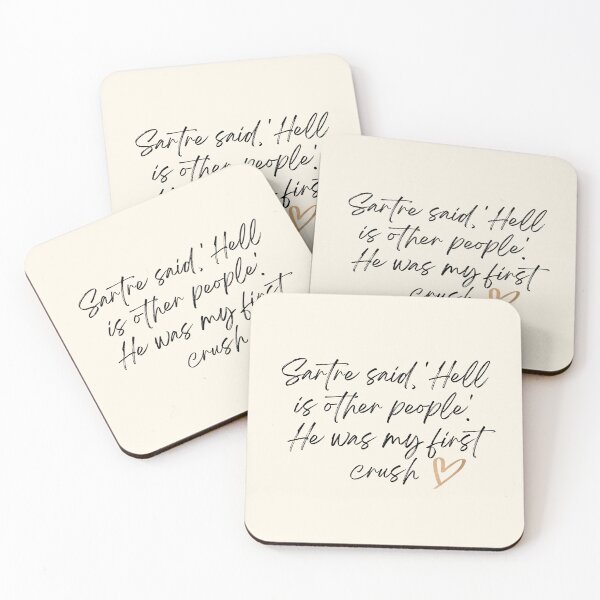 Sartre said,'Hell
is other people'.
His first
Sartre said,'Hell
is other people'.
He was my first
crush
Sartre said,'Hell
is other people'.
He was my first
crush
Sartre said,'Hell
is other people'.
He was my first
crush